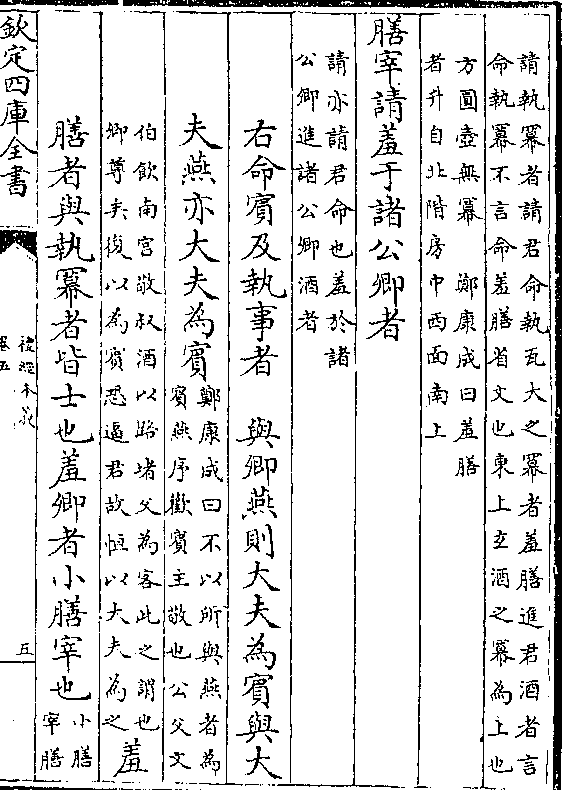 請執冪者請君命執瓦大之冪者羞膳進君酒者言
命執冪不言命羞膳省文也東上玄酒之冪為上也
方圓壺無冪　鄭康成曰羞膳
者升自北階房中西面南上
膳宰請羞于諸公卿者
請亦請君命也羞於諸
公卿進諸公卿酒者
右命賓及執事者　與卿燕則大夫為賓與大
夫燕亦大夫為賓
鄭康成曰不以所與燕者為
賓燕序歡賓主敬也公父文
伯飲南宮敬叔酒以路堵父為客此之謂也
卿尊矣復以為賓恐逼君故恒以大夫為之
羞
膳者與執冪者皆士也羞卿者小膳宰也
小膳
宰膳
欽定四庫全書
禮經本義
卷五
五